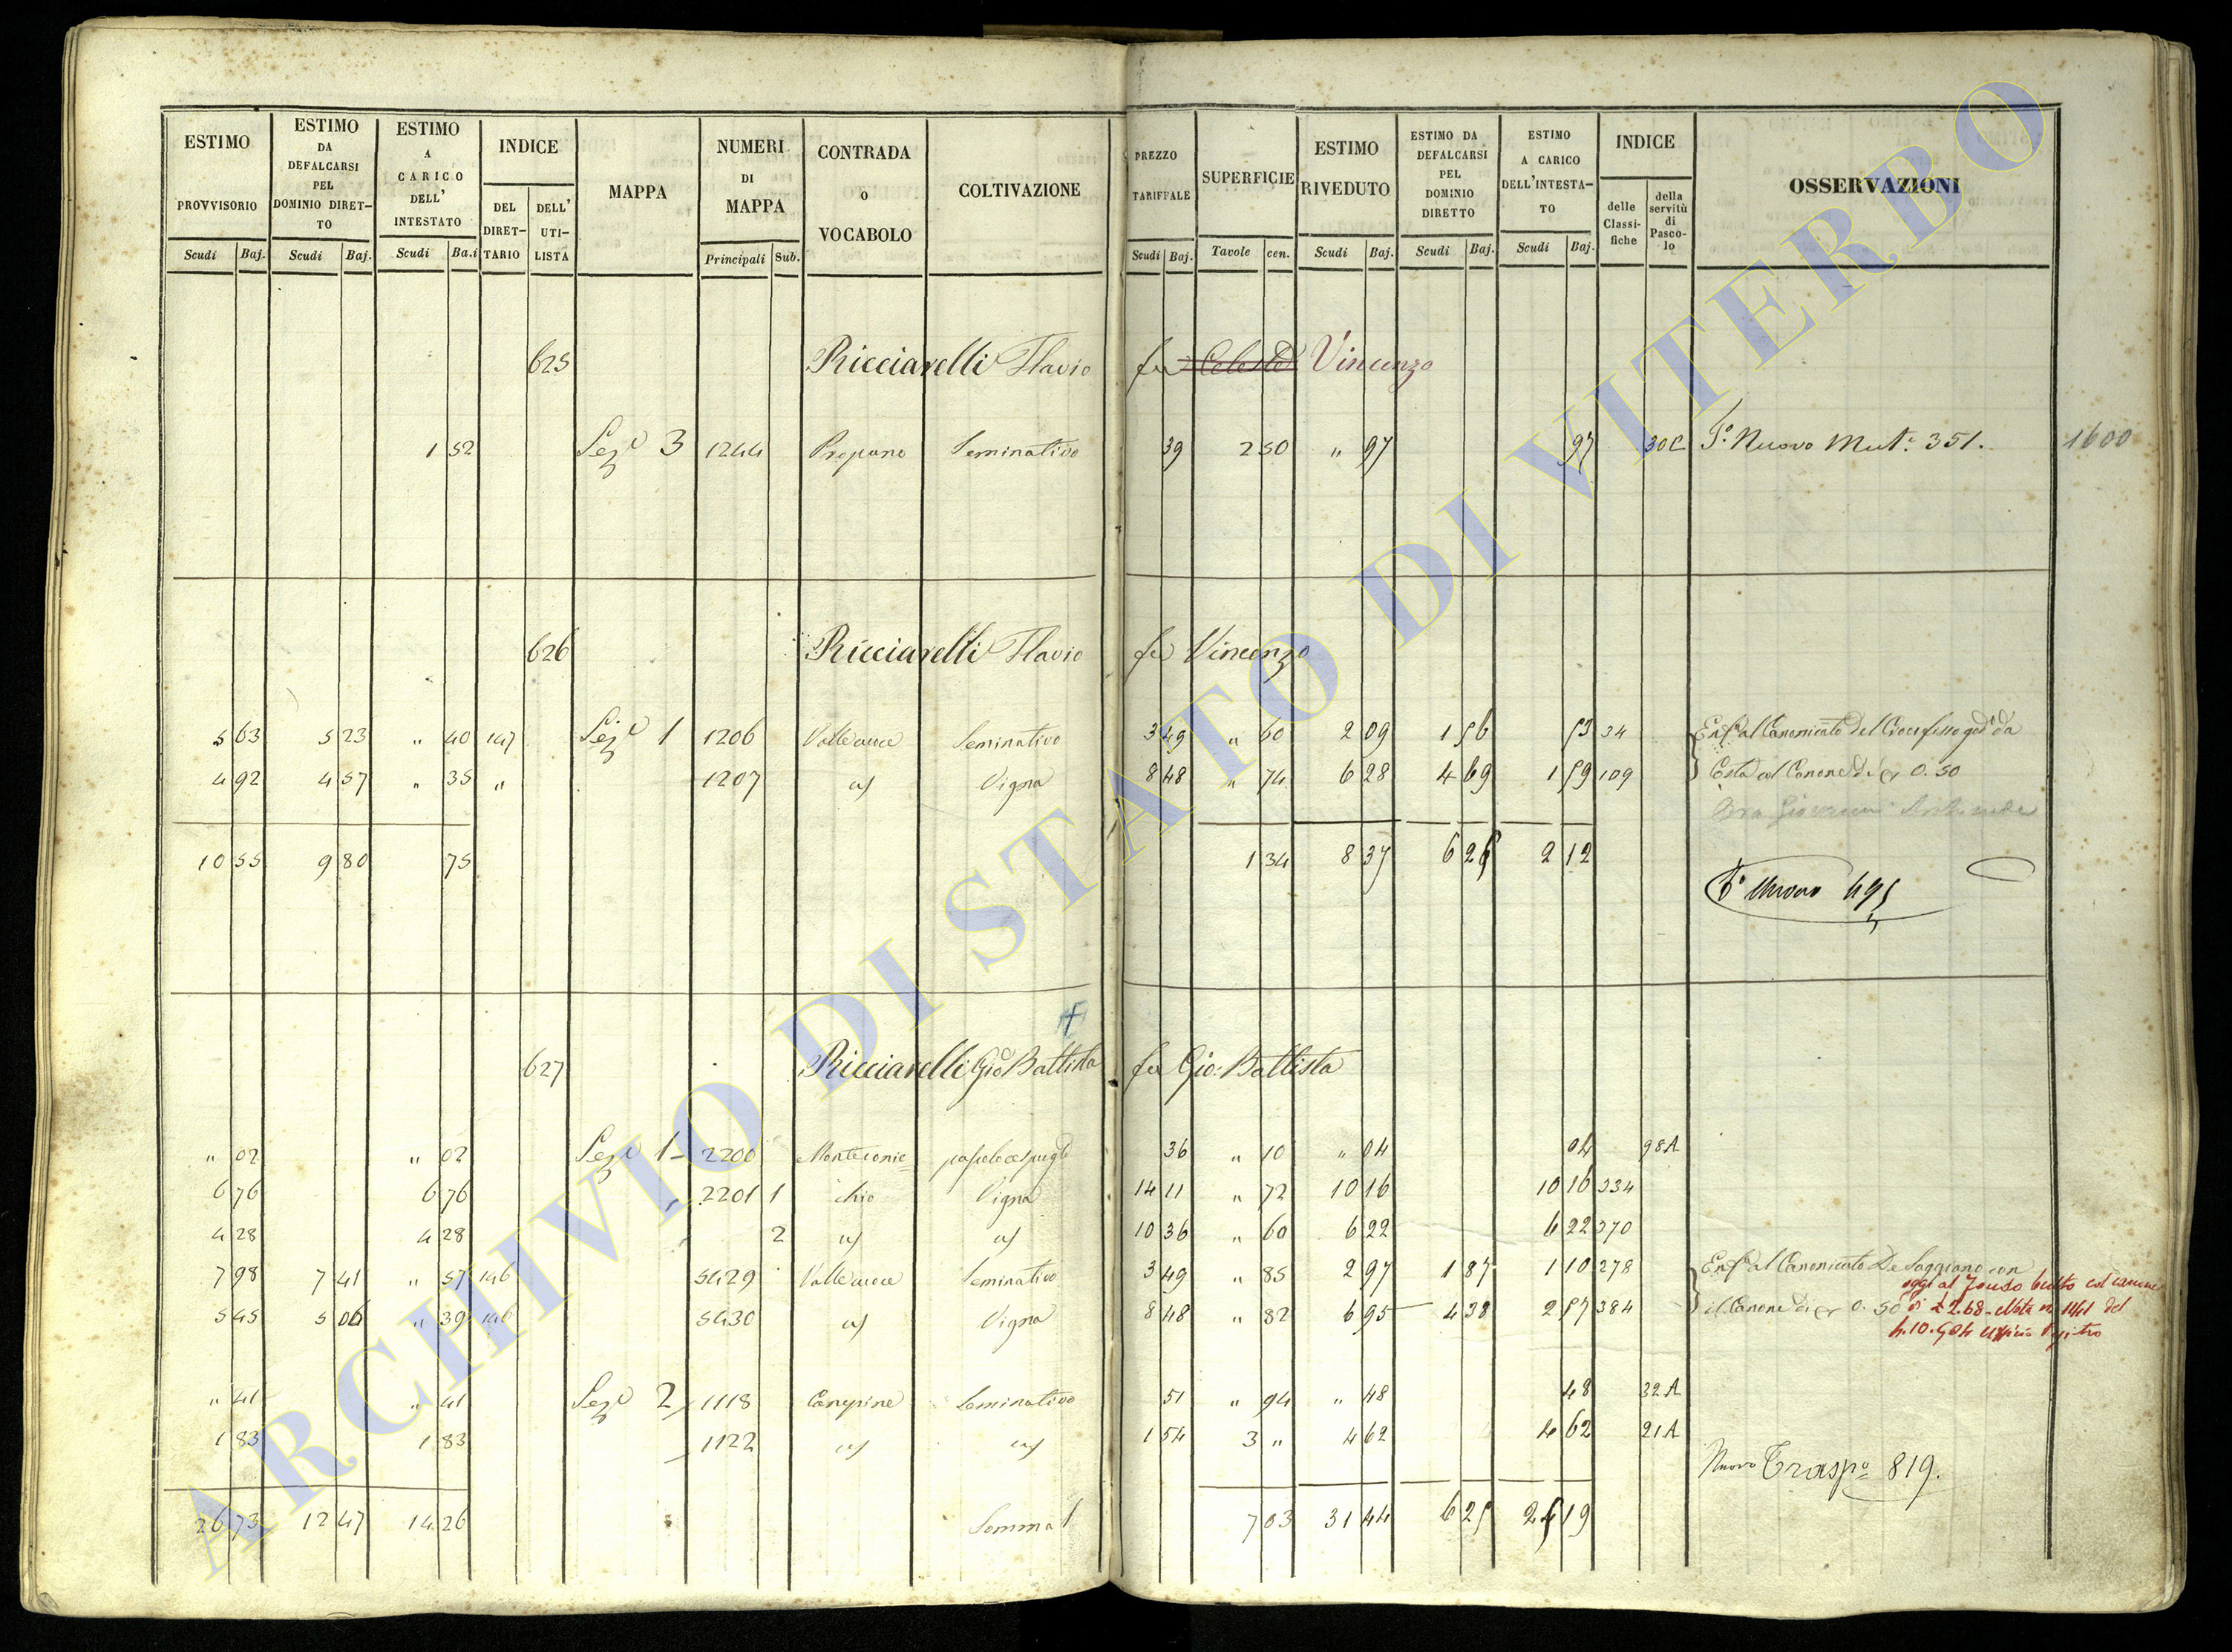 ESTIMO PROVVISORIO Scudi Baj.
ESTIMO DA DEFALCARSI PEL DOMINIO DIRET-TO Scudi Baj.
ESTIMO A CARICO DELL' INTESTATO Scudi Ba.i
INDICE DEL DIRET-TARIO DELL' UTI-LISTA
MAPPA
NUMERI DI MAPPA Principali Sub.
CONTRADA o VOCABOLO
COLTIVAZIONE
PREZZO TARIFFALE Scudi Baj.
SUPERFICIE Tavole cen.
ESTIMO RIVEDUTO Scudi Baj.
ESTIMO DA DEFALCARSI PEL DOMINIO DIRETTO Scudi Baj.
ESTIMO A CARICO DELL'INTESTA-TO Scudi Baj.
INDICE delle Classi-fiche della servitù di Pasco-lo
OSSERVAZIONI
625 Ricciarelli Flavio fu Celeste Vincenzo
1 52 Sez.e 3 1244 Propano Seminativo 39 2 50 " 97 97 30C T.o Nuovo Mut.e 351. 1600
626 Ricciarelli Flavio fu Vincenzo
5 63 5 23 " 40 147 Sez.e 1 1206 Valleawce Seminativo 3 49 " 60 2 09 1 56 53 34 Enf.a al Canonicato del Crocefisso god.a da
4 92 4 57 " 35 " 1207 a/ Vigna 8 48 " 74 6 28 4 69 1 59 109 Costa col Canone di 0.50
10 55 9 80 75 1 34 8 37 6 25 2 12
T.o Nuovo 495
627 Ricciarelli Gio Battista fu Gio: Battista
" 02 " 02 Sez.e 1 2200 Montecenic= pascolo cespugl.o 36 " 10 " 04 04 98A
6 76 6 76 2201 1 chio Vigna 14 11 " 72 10 16 10 16 334
4 28 4 28 2 a/ a/ 10 36 " 60 6 22 6 22 370
7 98 7 41 " 57 146 5429 Valleawce Seminativo 3 49 " 85 2 97 1 87 1 10 278 Enf.a al Canonicato De Saggiano con
oggi al Fondo Culto col canone
5 45 5 06 " 39 146 5430 a/ Vigna 8 48 " 82 6 95 4 38 2 57 384 il Canone di 0.50 di £ 2.68 - Nota n 1441 del
4.10.904 Ufficio Registro
" 41 " 41 Sez.e 2 1118 Canepine Seminativo 51 " 94 " 48 48 32A
1 83 1 83 1122 a/ a/ 1 54 3 " 4 62 4 62 21A
Nuovo Trasp.o 819.
26 73 12 47 14 26 Somma 7 03 31 44 6 25 25 19
ARCHIVIO DI STATO DI VITERBO